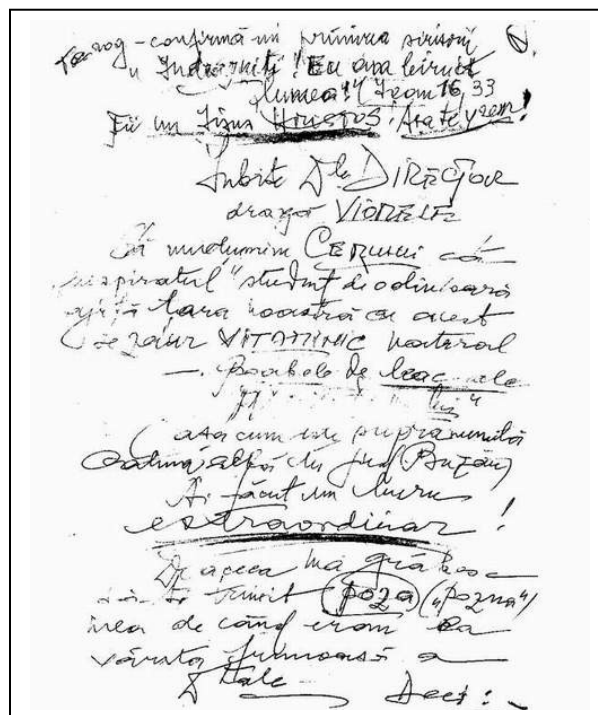 Te rog - confirmă-mi primirea scrisorii
"Îndrăzniți! Eu am biruit
lumea!" (Ioan 16,33
Fii un Iisus Hristos.
Iubite Dle DIRECTOR
dragă VIORELE
Să mulțumim CERULUI că
inspiratul "student de odinioară
țara noastră cu acest
tezaur VITAMINIC natural
—. Boabele de leac ale
(așa cum este supranumită
Cătina albă din jud. (Buzău)
Ai făcut un lucru
extraordinar!
De aceea mă grăbesc
să-ți trimit poza ("pozna")
mea de când eram la
vârsta frumoasă a
Dtale Deci: -